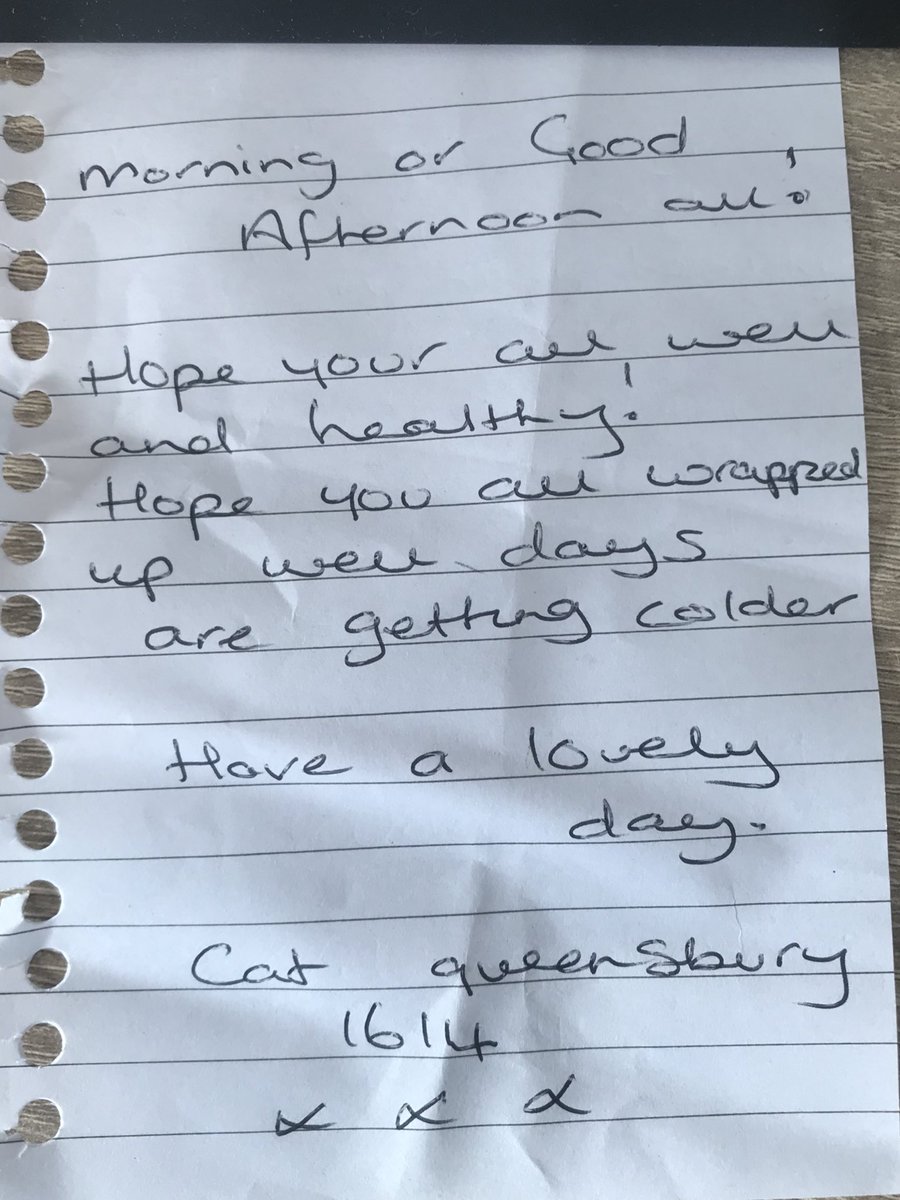 Morning or Good
Afternoon all!
Hope your all well
and healthy!
Hope you all wrapped
up well days
are getting colder
Have a lovely
day.
Cat queensbury
1614
x x x